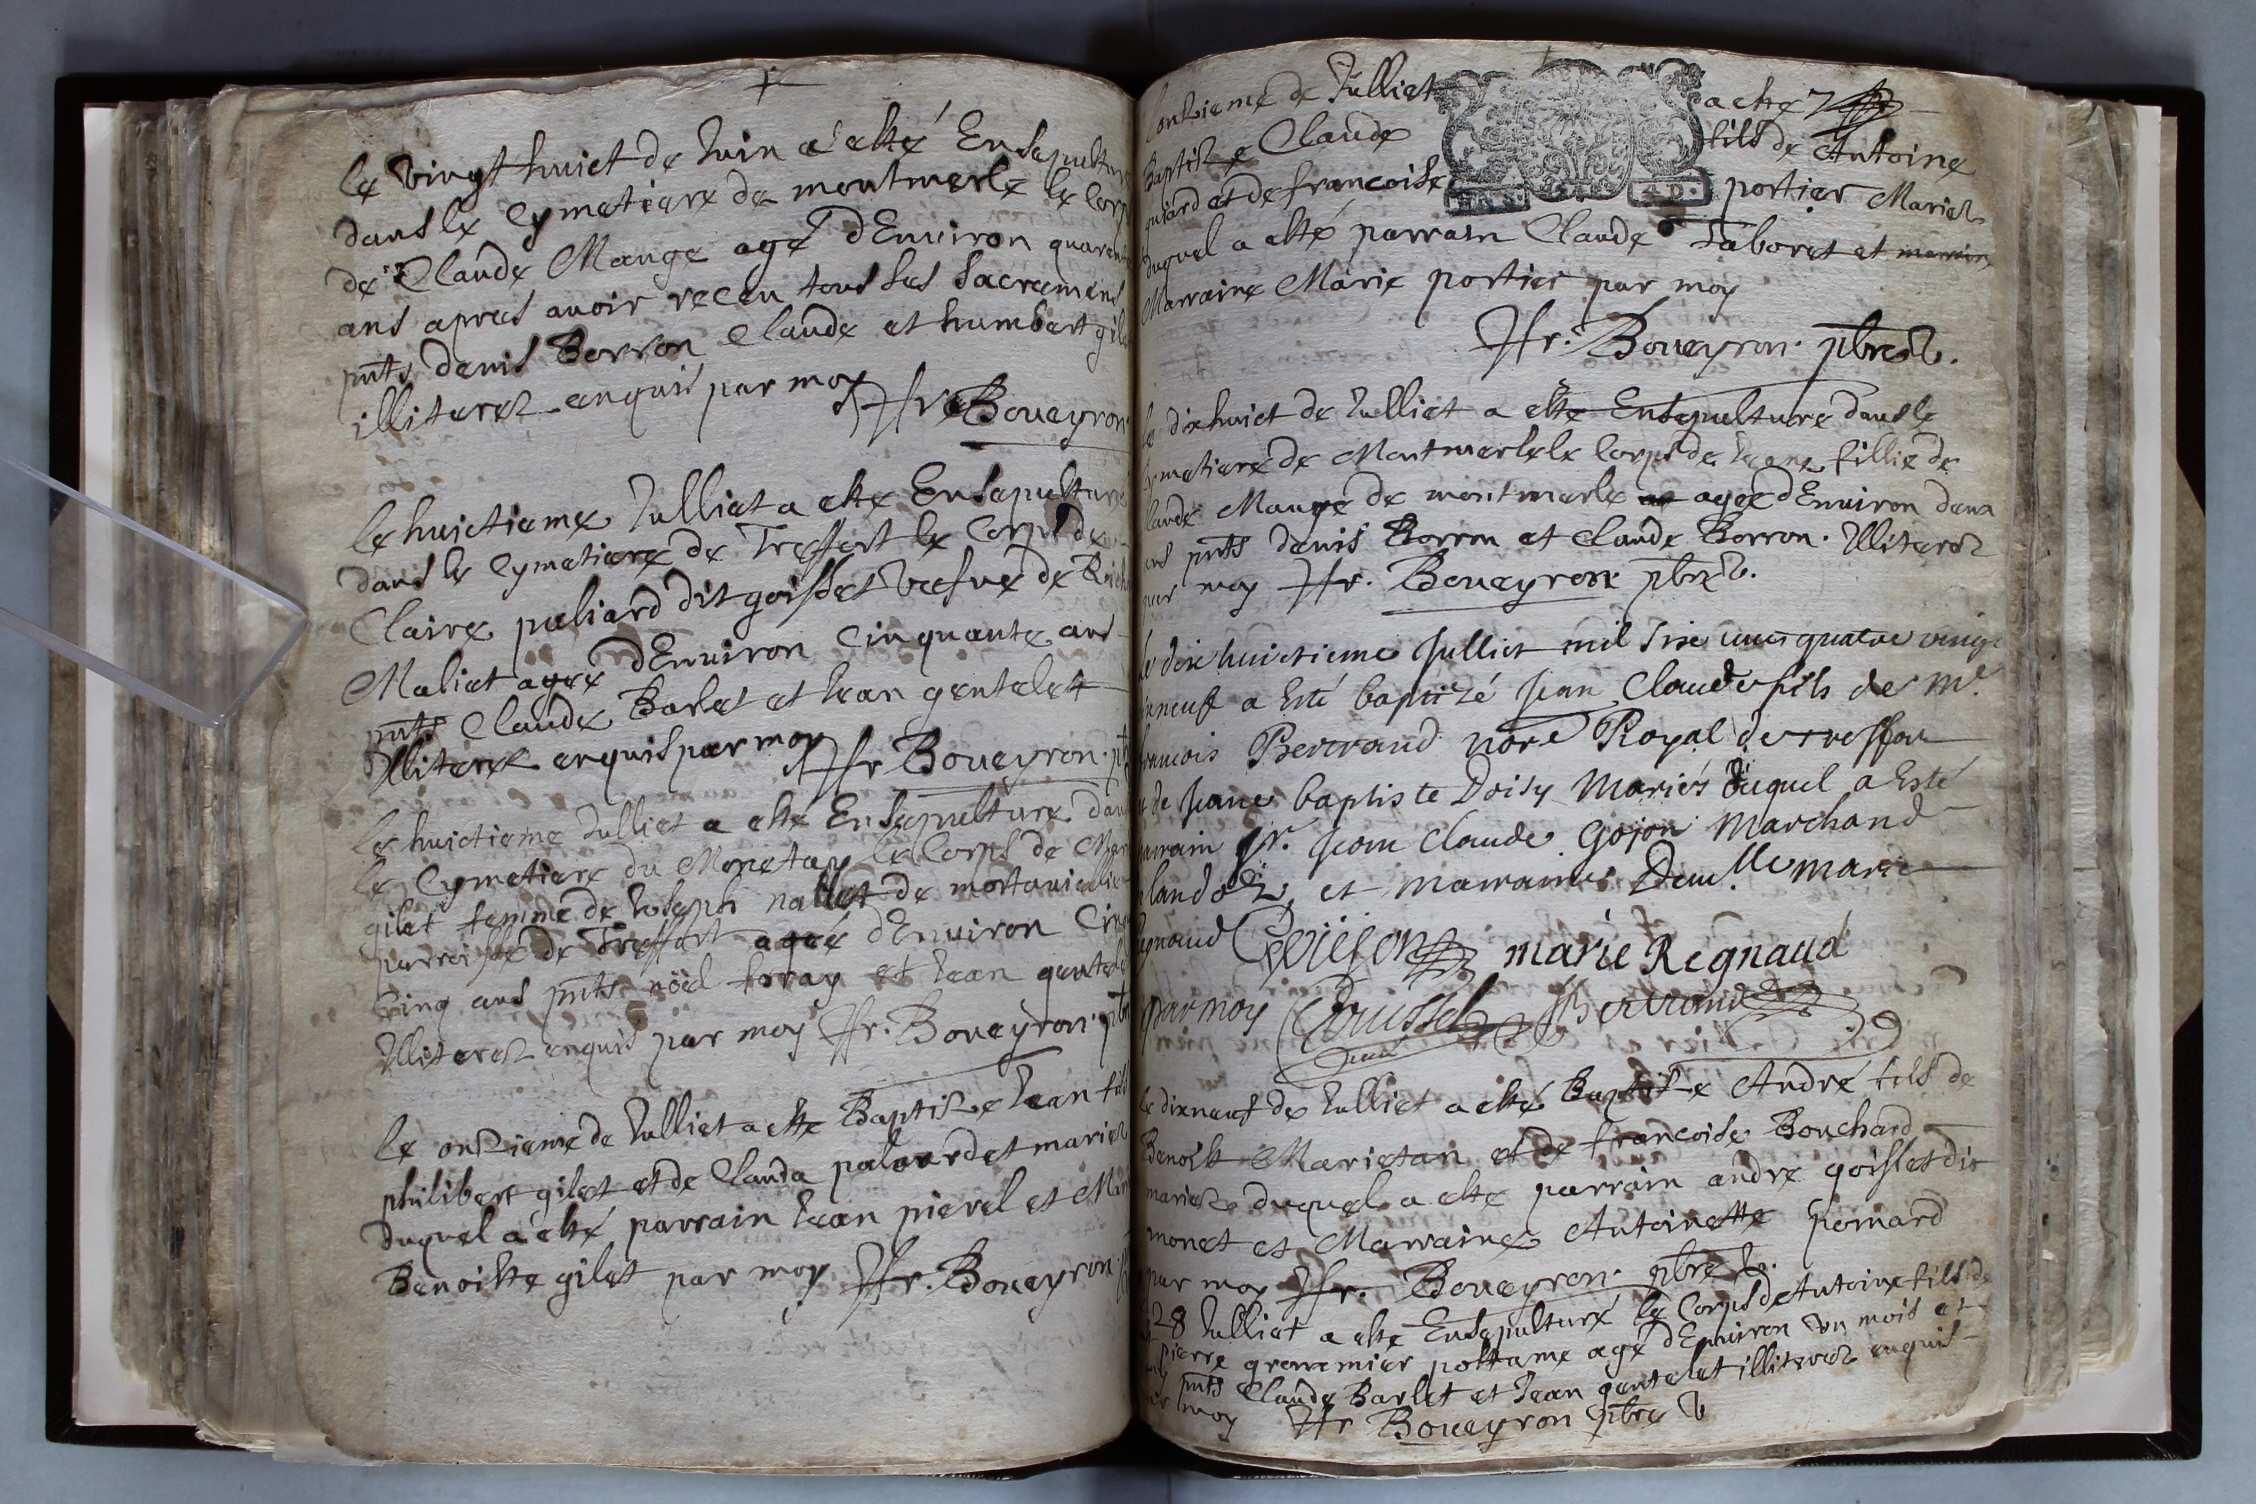 le vingt huict de Juin a esté Ensepulture
dans le Cymetiere de montmerle le Corps
de Claude Mange agé dEnuiron quarente
ans apres auoir receu tous ses Sacremens
pnts denis Borron Claude et humbert gilet
illiterez enquis par moy
Hr Boueyron
le huictieme Julliet a este Ensepulture
dans le Cymetiere de Treffort le Corps de
Claire paliard dit goisset vefue de
Maliet agee dEnuiron Cinquante ans
pnts Claude Barlet et Jean gentelet
Illiterez enquis par moy
Hr Boueyron
le huictieme Julliet a esté Ensepulture dans
le Cymetiere du Monetay le Corps de
gilet femme de Joseph nallet de
parroisse de Treffort agée dEnuiron Cinq
Cinq ans pnts noël foray et Jean gentelet
Illiterez enquis par moy Hr. Boueyron
le onzieme de Julliet a este Baptize Jean fils
philibert gilet et de Clauda paluard et mariez
duquel a esté parrain Jean pierel et
Benoiste gilet par moy Hr. Boueyron
Lonzieme de Julliet a este
Baptize Claude fils de Antoine
et de francoise portier Mariez
duquel a esté parrain Claude Taboret et marraine
Marraine Marie portier par moy
Hr. Boueyron. pbre V.
le dixhuict de Julliet a este Ensepulture dans le
Cymetiere de Montmerle le Corps de Jeane fillie de
Claude Mange de montmerle agée dEnuiron deux
ans pnts denis Borron et Claude Borron. Illiterez
par moy Hr. Boueyron pbre V.
le dixhuictieme Julliet mil six cens quatre vingt
neuf a Esté baptizé Jean Claude fils de Me.
francois Bertrand nore Royal de treffort
et de Jeane baptiste Doisy Mariés duquel a Esté
parrain Sr. Jean Claude Gojon Marchand
et marraine Damlle marie
Regnaud Goieson marie Regnaud
par moy Brussel Bertrand
le dixneuf de Julliet a esté Baptize André fils de
Benoist Marietan et de francoise Bouchard
mariez duquel a este parrain andre goisset dit
monet et Marraine Antoinette pomard
par moy Hr. Boueyron. pbre V.
28 Julliet a este Ensepulturé le Corps de Antoine fils de
Pierre grammier postame agé dEnuiron vn mois et
pnts Claude Barlet et Jean gentelet illiterez enquis
par moy Hr Boueyron pbre V